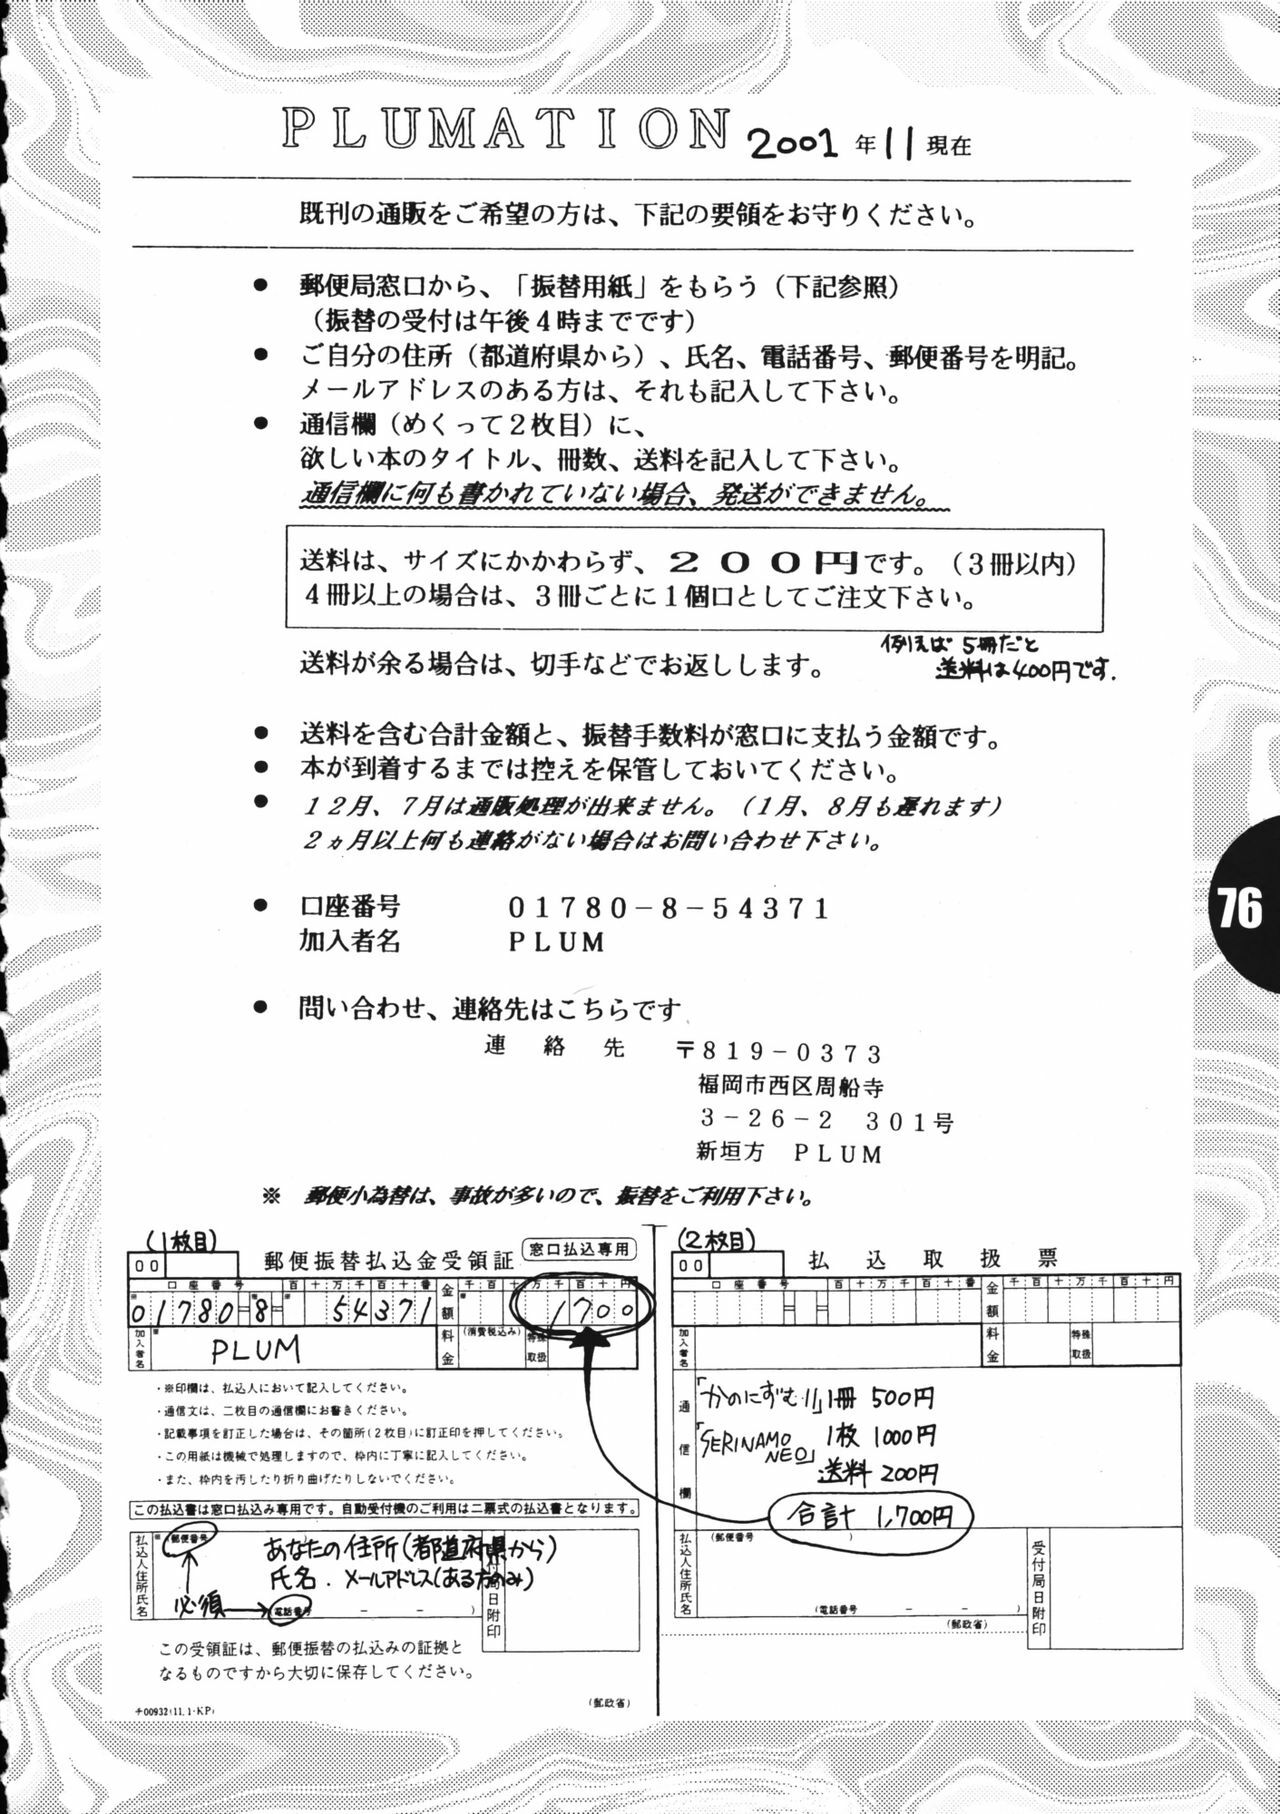 PLUMATION 2001年11現在
既刊の通販をご希望の方は、下記の要領をお守りください。
● 郵便局窓口から、「振替用紙」をもらう（下記参照）
（振替の受付は午後４時までです）
● ご自分の住所（都道府県から）、氏名、電話番号、郵便番号を明記。
メールアドレスのある方は、それも記入して下さい。
● 通信欄（めくって２枚目）に、
欲しい本のタイトル、冊数、送料を記入して下さい。
通信欄に何も書かれていない場合、発送ができません。
送料は、サイズにかかわらず、２００円です。（３冊以内）
４冊以上の場合は、３冊ごとに１個口としてご注文下さい。
例えば 5冊だと
送料は400円です.
送料が余る場合は、切手などでお返しします。
● 送料を含む合計金額と、振替手数料が窓口に支払う金額です。
● 本が到着するまでは控えを保管しておいてください。
● １２月、７月は通販処理が出来ません。（１月、８月も遅れます）
２ヵ月以上何も連絡がない場合はお問い合わせ下さい。
● 口座番号 ０１７８０－８－５４３７１
加入者名 ＰＬＵＭ
76
● 問い合わせ、連絡先はこちらです
連絡先 〒８１９－０３７３
福岡市西区周船寺
３－２６－２ ３０１号
新垣方 ＰＬＵＭ
※ 郵便小為替は、事故が多いので、振替をご利用下さい。
(1枚目)
00 郵便振替払込金受領証 窓口払込専用
口座番号 百十万千百十番 金額 千百十万千百十円
01780-8- 54371 1700
加入者名 PLUM 料金 (消費税込み) 特殊取扱
・※印欄は、払込人において記入してください。
・通信文は、二枚目の通信欄にお書きください。
・記載事項を訂正した場合は、その箇所(2枚目)に訂正印を押してください。
・この用紙は機械で処理しますので、枠内に丁寧に記入してください。
・また、枠内を汚したり折り曲げたりしないでください。
この払込書は窓口払込み専用です。自動受付機のご利用は二票式の払込書となります。
払込人住所氏名 ※(郵便番号
あなたの住所(都道府県から)
氏名. メールアドレス(ある方のみ)
必須→ (電話番号 － － )
受付局日附印
この受領証は、郵便振替の払込みの証拠と
なるものですから大切に保存してください。
(郵政省)
チ00932(11.1・KP)
(2枚目)
00 払込取扱票
口座番号 百十万千百十番 金額 千百十万千百十円
加入者名 料金 特殊取扱
通信欄
「かのにずむ11」1冊 500円
「SERINAMO NEO」 1枚 1000円
送料 200円
合計 1,700円
払込人住所氏名 (郵便番号 )
(電話番号 － － )
受付局日附印
(郵政省)